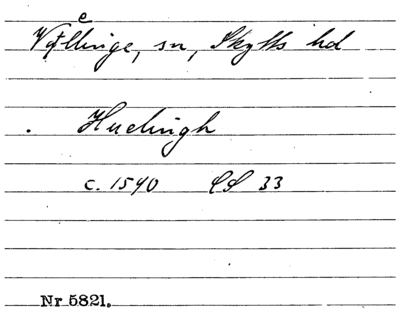 Vellinge, sn, Skytts hd
Huelingh
c. 1540 33
Nr 5821.